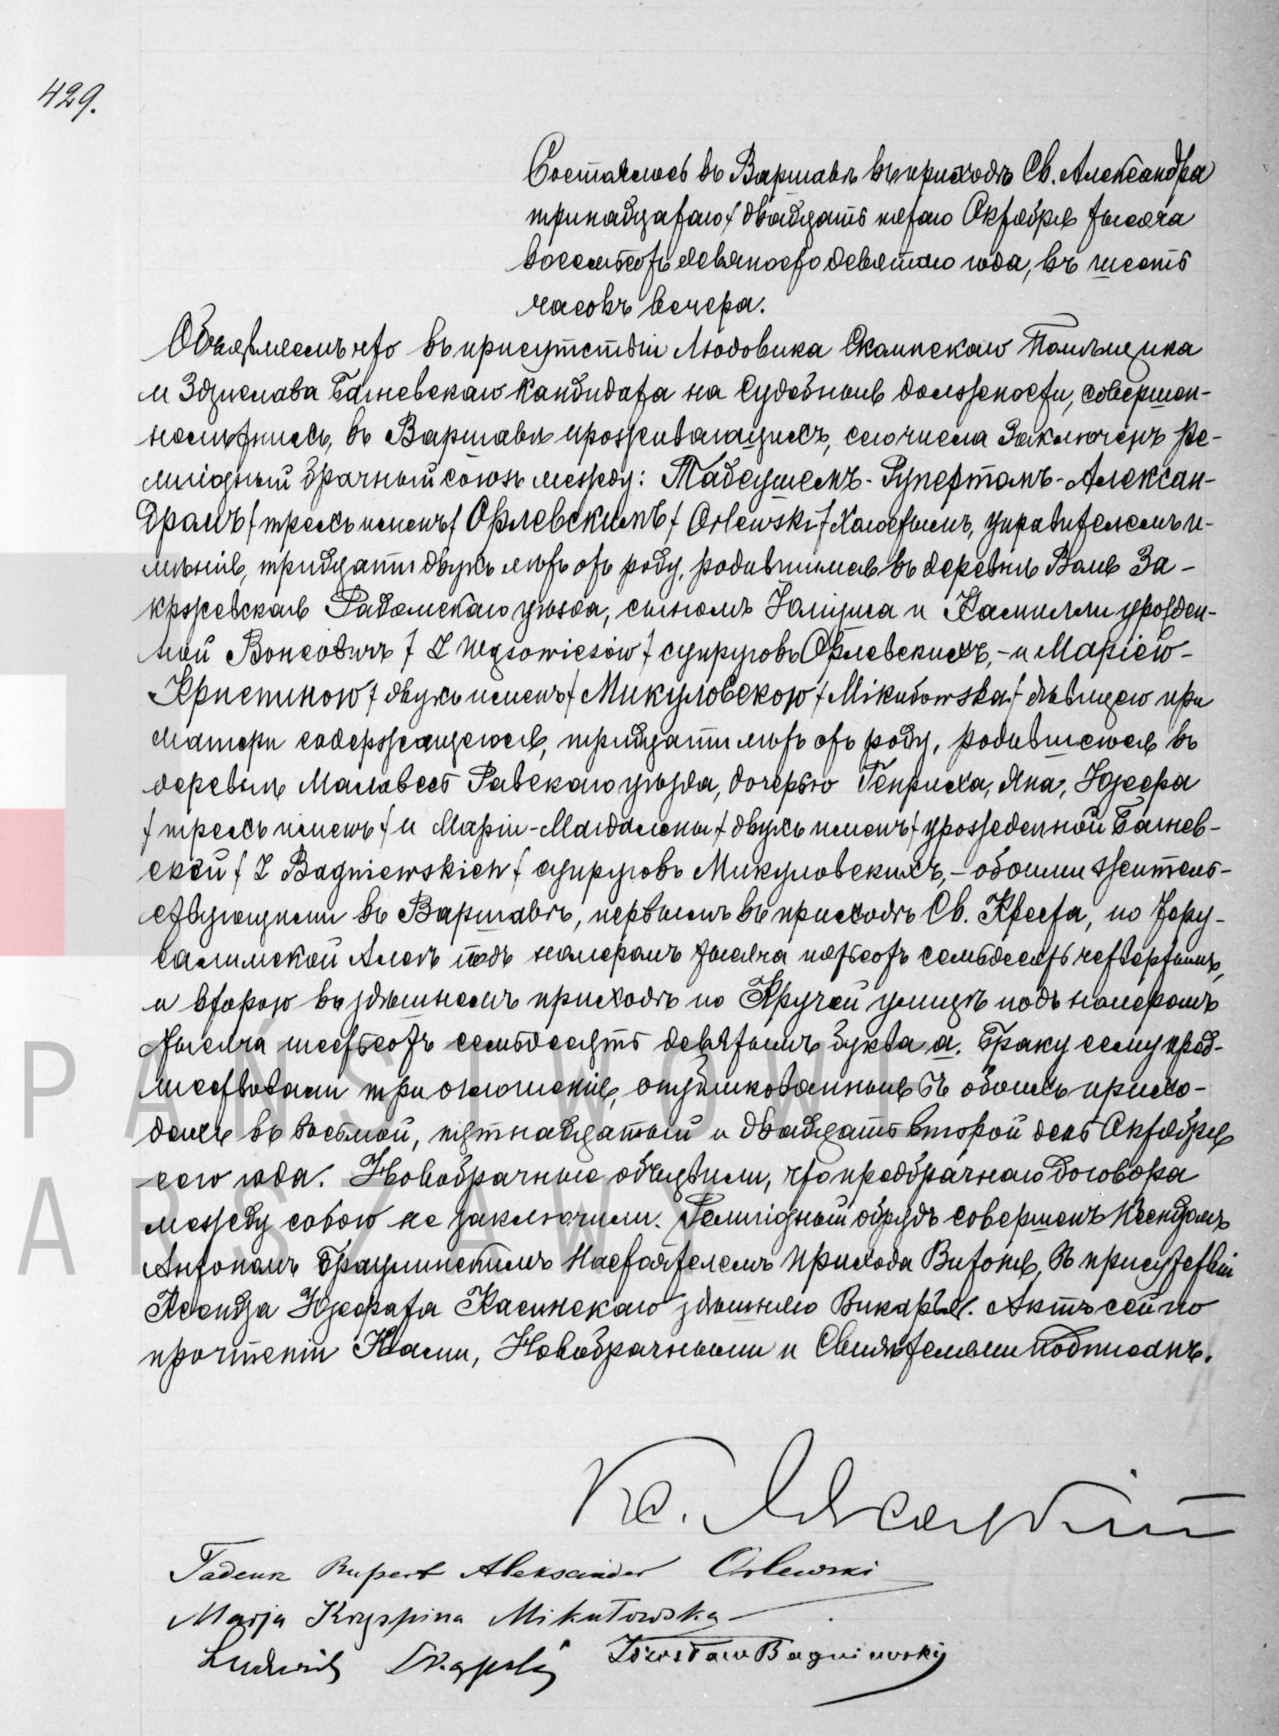 429.
Состоялось въ Варшавѣ въ приходѣ Св. Александра
тринадцатаго/двадцать пятаго Октября тысяча
восемьсотъ девяносто девятаго года, въ шесть
часовъ вечера.
Объявляемъ что въ присутствіи Людовика Помѣщика
и Здзислава Багневскаго Кандидата на Судебныя должности, совершен-
нолѣтнихъ, въ Варшавѣ проживающихъ, сего числа заключенъ Ре-
лигіозный брачный союзъ между: Тадеушемъ-Рупертомъ-Алексан-
дромъ/трехъ именъ/ Орлевскимъ/Orlewski/Холостымъ, управителемъ и-
мѣнія, тридцати двухъ лѣтъ отъ роду, родившимся въ деревнѣ Воля За-
кржевская Радомскаго уѣзда, сыномъ Юліуша и Камиллы урожден-
ной Вонсовичъ/Z Wąsowiczów/супруговъ Орлевскихъ, - и Маріею-
Криспиною/двухъ именъ/Микуловскою/Mikułowska/дѣвицею при
Матери содержащеюся, тридцати лѣтъ отъ роду, родившеюся въ
деревнѣ Малавесь Равскаго уѣзда, дочерью Генриха, Яна, Юзефа
/трехъ именъ/и Маріи-Магдалены/двухъ именъ/урожденной Багнев-
ской/Z Bagniewskich/супруговъ Микуловскихъ, - обоими жительс-
твующими въ Варшавѣ, первымъ въ приходѣ Св. Креста, по Іеру-
салимской Алеѣ подъ номеромъ тысяча пятьсотъ семьдесятъ четвертымъ,
и второю въ здѣшнемъ приходѣ по Кручей улицѣ подъ номеромъ
тысяча шестьсотъ семьдесятъ девятымъ буква а. Браку сему пред-
шествовали три оглашенія, опубликованныя въ обоихъ прихо-
дахъ въ восьмой, пятнадцатый и двадцать второй день Октября
сего года. Новобрачные объявили, что предбрачнаго договора
между собою не заключили. Религіозный обрядъ совершенъ Ксендзомъ
Антономъ Настоятелемъ прихода въ присутствіи
Ксендза Юзефата Касинскаго здѣшняго Викарія. Актъ сей по
прочтеніи Нами, Новобрачными и Свидѣтелями подписанъ.
Кс.
Tadeusz Rupert Aleksander Orlewski
Marja Kryspina Mikułowska
Ludwik Zdzisław Bagniewski
PAŃSTWOWE
ARSZAWY